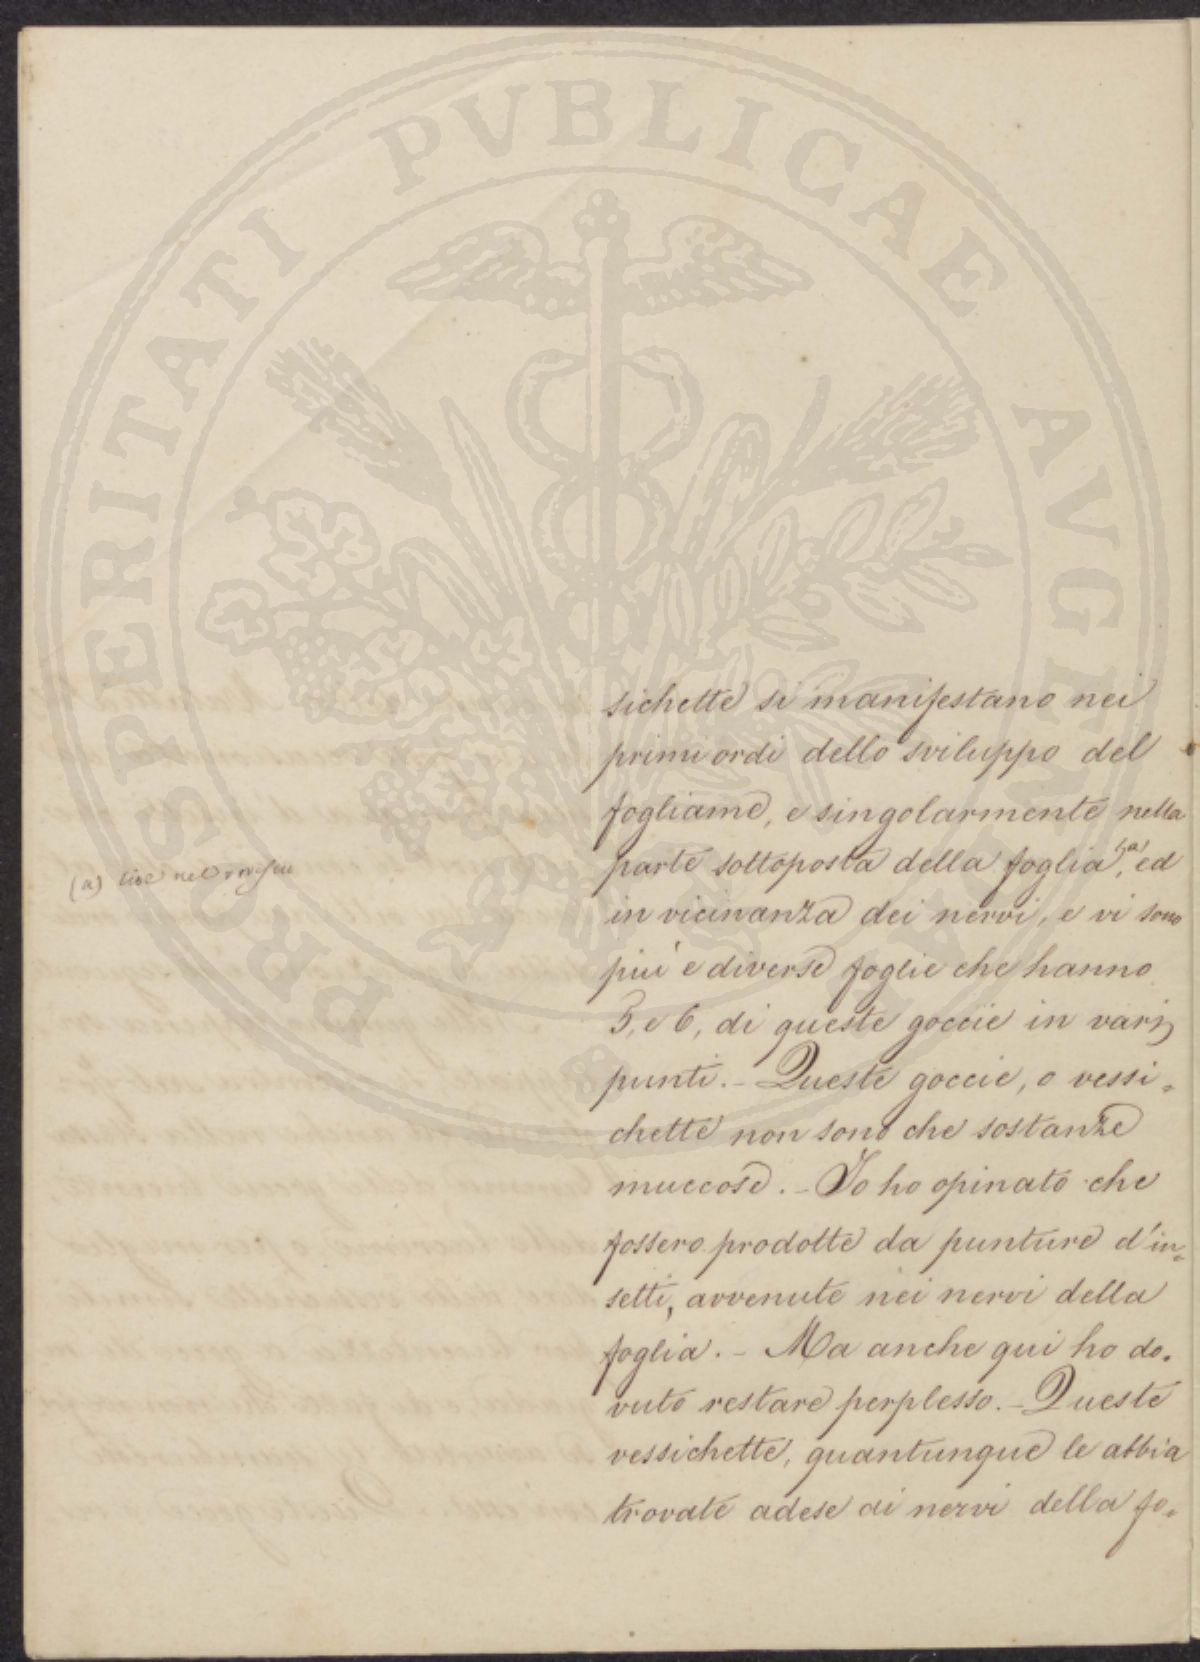 PROSPERITATI PVBLICAE AVGENDAE
sichette si manifestano nei
primi ordi dello sviluppo del
fogliame, e singolarmente nella
parte sottoposta della foglia,(a) ed
in vicinanza dei nervi, e vi sono
piú e diverse foglie che hanno
5, e 6, di queste goccie in varj
punti. - Queste goccie, o vessi=
chette non sono che sostanze
muccose. - Io ho opinato che
fossero prodotte da punture d'in=
setti, avvenute nei nervi della
foglia. - Ma anche qui ho do=
vuto restare perplesso. - Queste
vessichette, quantunque le abbia
trovate adese ai nervi della fo=
(a)